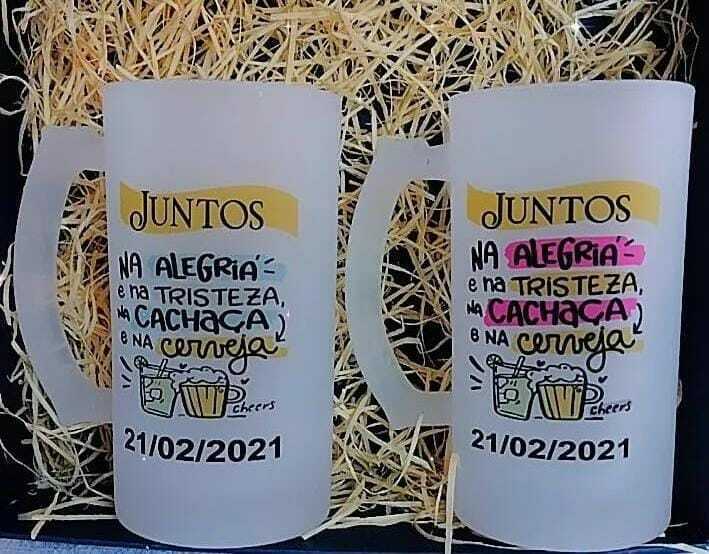 JUNTOS
NA ALEGRIA
e na TRISTEZA,
NA CACHAÇA
e NA cerveja
cheers
21/02/2021
JUNTOS
NA ALEGRIA
e na TRISTEZA,
NA CACHAÇA
e NA cerveja
cheers
21/02/2021